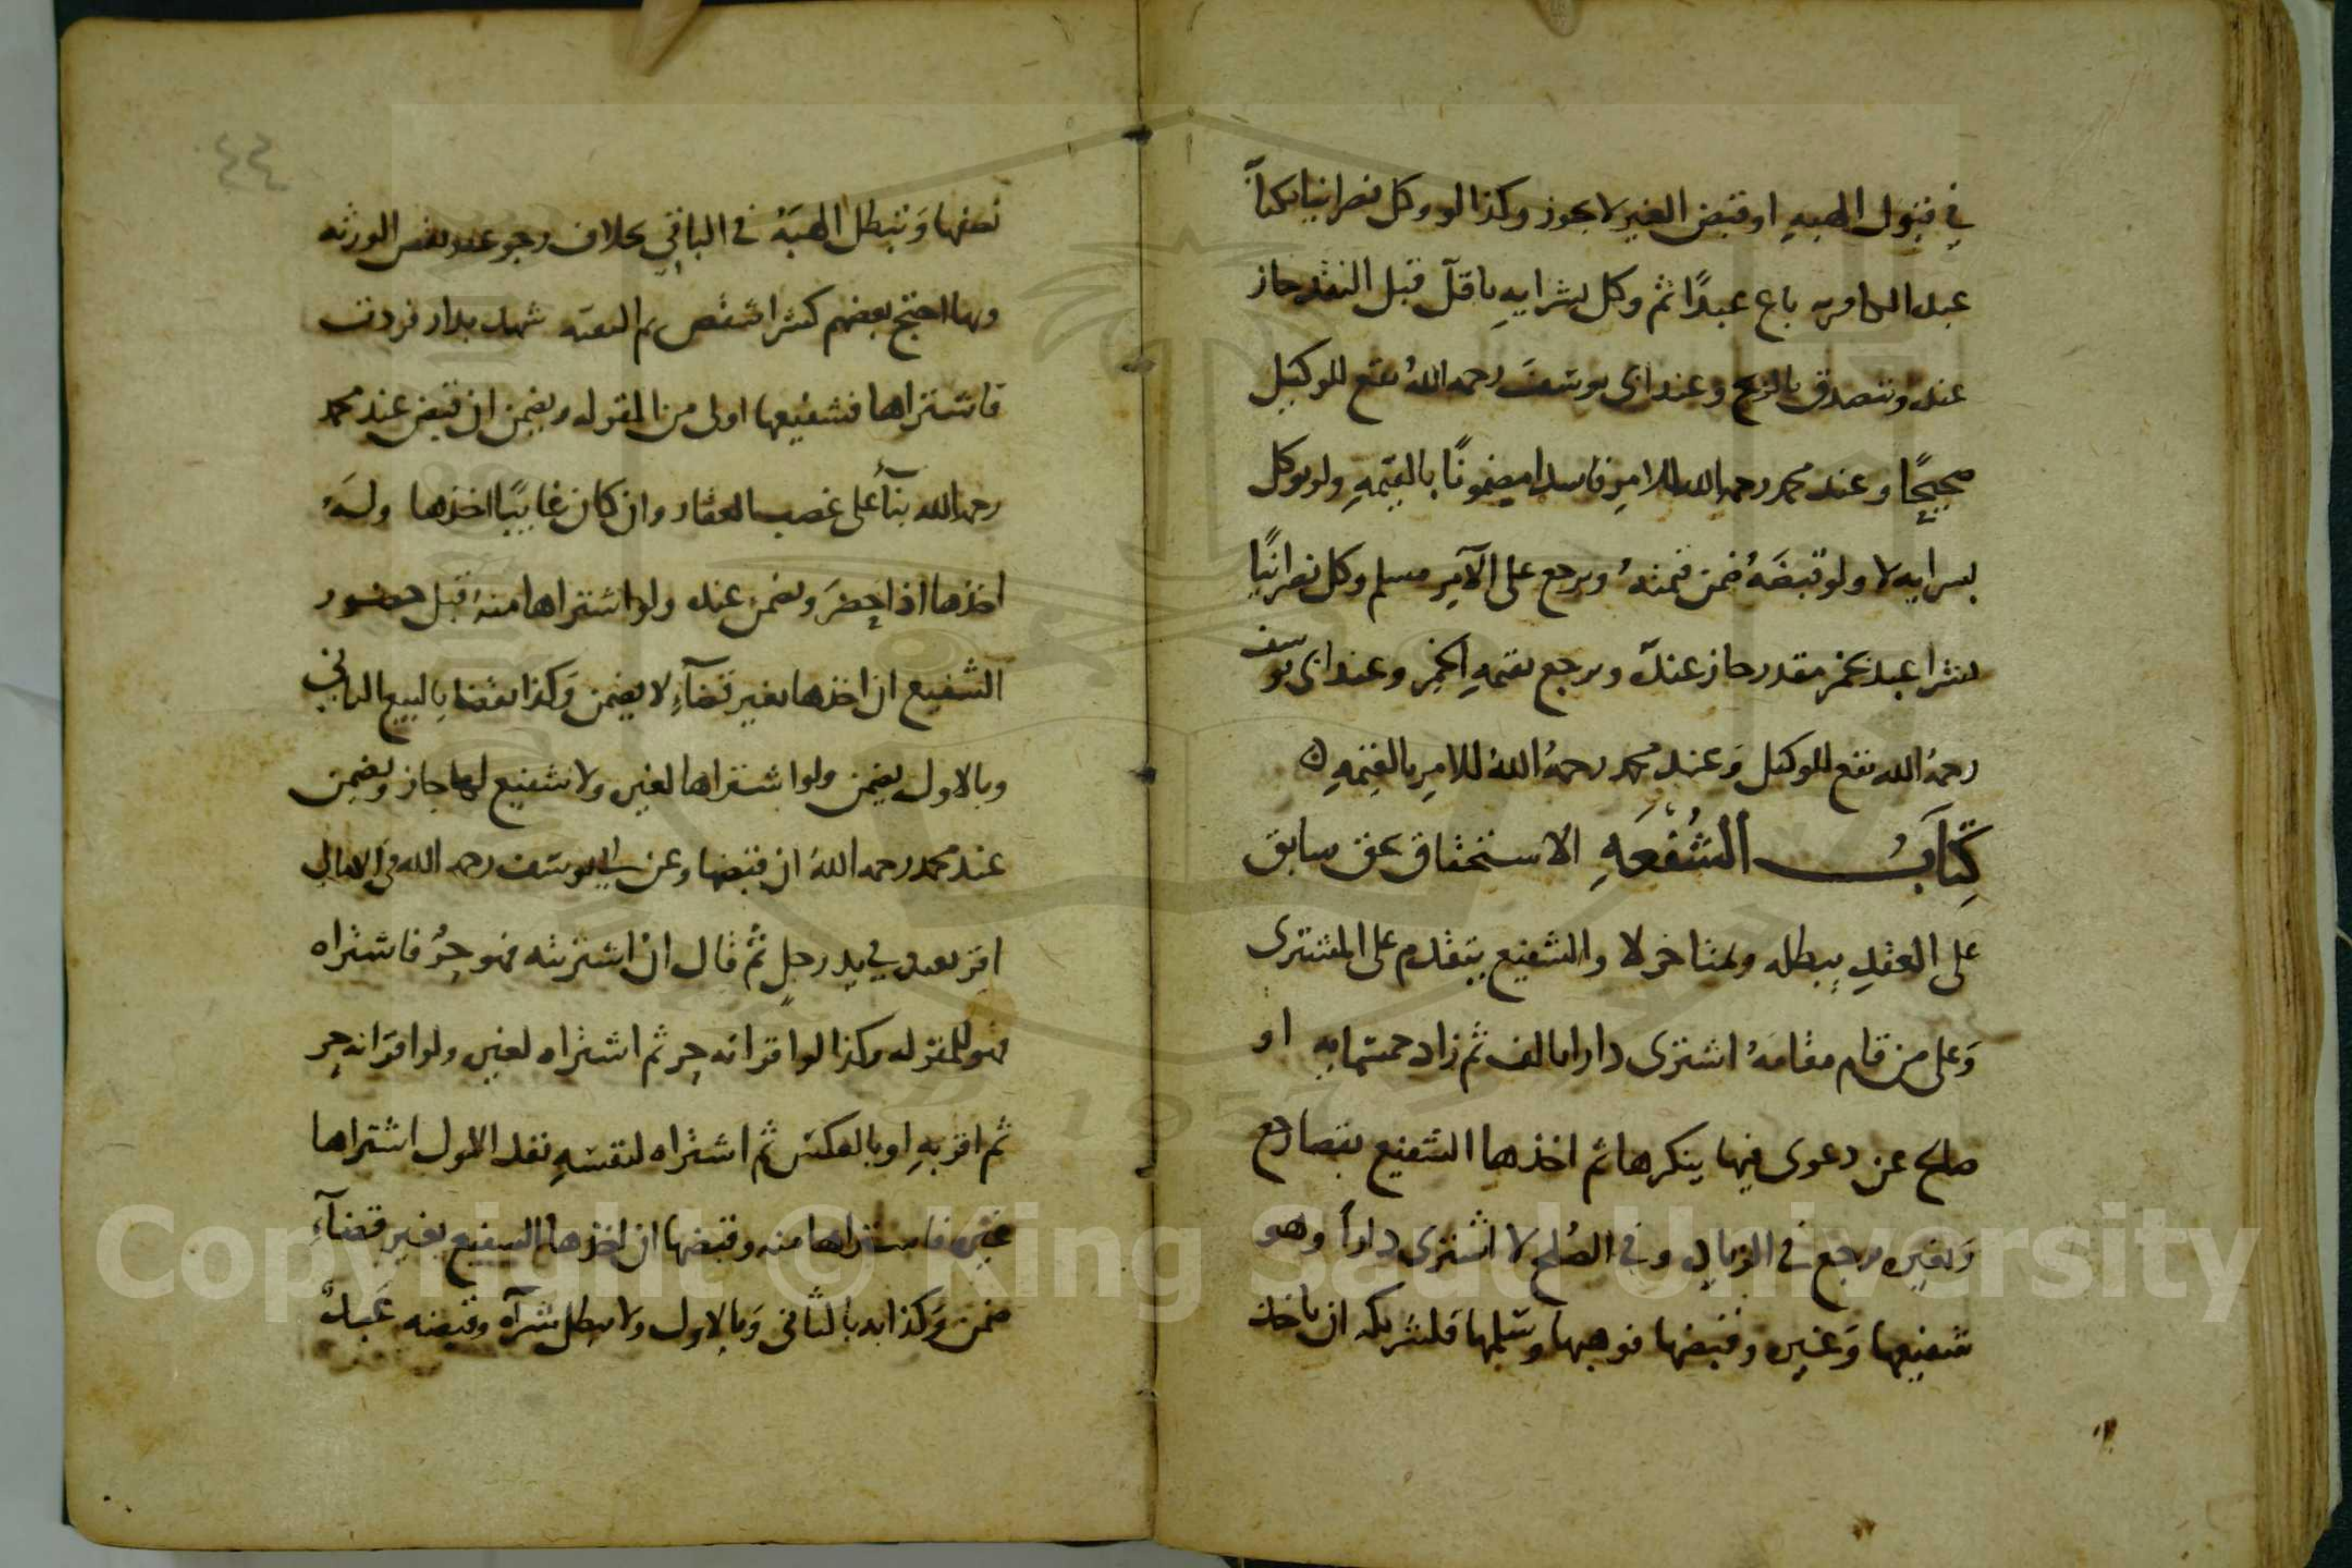 في قبول الهبه او قبض الغير لا يجوز وكذا لو وكل نصرانيا
باع عبدًا ثم وكل بشرايه باقل قبل النقد جاز
عنده وتتصدق بالربح وعند ابى يوسف رحمه الله يقع للوكيل
صحيحًا وعند محمد رحمه الله للامر فاسدا مضمونًا بالقيمه ولو توكل
بسرايه لا ولو قبضه ضمن قيمته ويرجع على الآمر مسلم وكل نصرانيًا
بشرا عبد بخمر جاز عنده ويرجع بقيمه الخمر وعند ابى يوسف
رحمه الله يقع للوكيل وعند محمد رحمه الله للامر بالقيمه
كتاب الشفعه الاستحقاق بحق سابق
على العقد يبطله ولمتاخر لا والشفيع يتقدم على المشترى
وعلى من قام مقامه اشترى دارا بالف ثم زاد خمسمايه او
صالح عن دعوى فيها ينكرها ثم اخذها الشفيع بقضا رجع
وبغيره يرجع في الزياده وفي الصلح لا اشترى داراً وهو
شفيعها وغيره وقبضها فوهبها وسلمها فلشريكه ان ياخذ
٤٤
نصفها وتبطل الهبة في الباقي بخلاف رجوعه بعض الورثه
وبها احتج بعضهم كشرا شقص ثم البقيه شهد بدار فردت
فاشتراها فشفيعها اولى من المقر له ويضمن ان قبض عند محمد
رحمه الله بنآ على غصب العقار وان كان غايبًا اخذها وله
اخذها اذا حضر ويضمن عنده ولو اشتراها منه قبل حضور
الشفيع ان اخذها بغير قضآء لا يضمن وكذا بقضا بالبيع الثاني
وبالاول يضمن ولو اشتراها لغيره ولا شفيع لها جاز ويضمن
عند محمد رحمه الله ان قبضها وعن ابي يوسف رحمه الله في الامالي
اقر بعبد في يد رجل ثم قال ان اشتريته فهو حرٌ فاشتراه
فهو للمقر له وكذا لو اقر انه حر ثم اشتراه لغيره ولو اقر انه حر
ثم اقر به او بالعكس ثم اشتراه لنفسه نفذ الاول اشتراها
غيره فاستراها منه وقبضها ان اخذها السفيع بغير قضآء
ضمن وكذا به بالثاني وبالاول ولا يبطل شرآه وقبضه عبده
Copyright © King Saud University
1957